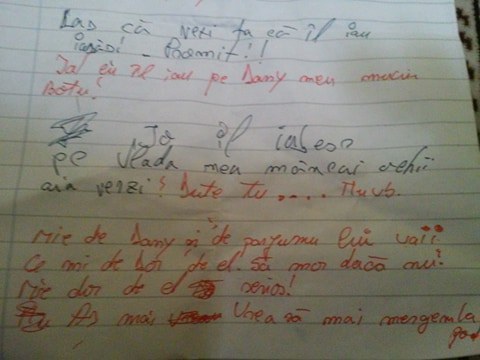 Las că vezi ta că îl iau
iarăși - Promit!!
Ia! eu îl iau pe Dany meu
Botu!
Io îl iubesc
pe Vlada meu ochii
aia verzi! Dute tu ....
Mie de Dany și de parfumu lui vaii
Ce mi de dor de el. Să mor dacă nu!
Mie dor de el serios!
Aș mai Vrea să mai mergem la